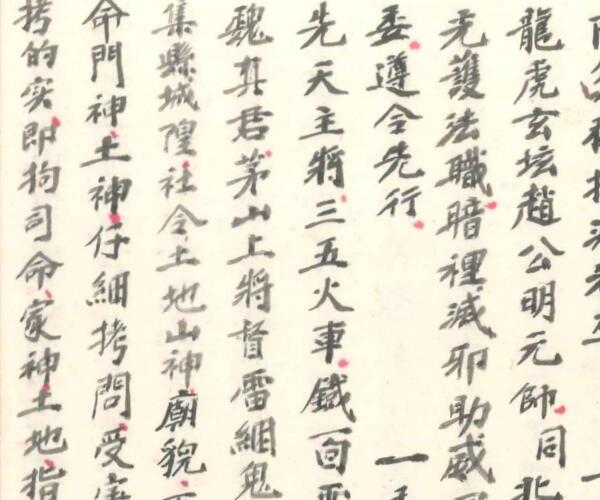 龍虎玄坛趙公明元帥同
无護法職暗裡滅邪助威
委遵令先行 一
先天主將三五火車鐵面
魏真君茅山上將督雷綑鬼
集縣城隍社令土地山神廟貌
命門神土神仔細拷問受
拷的实即拘司命家神土地指